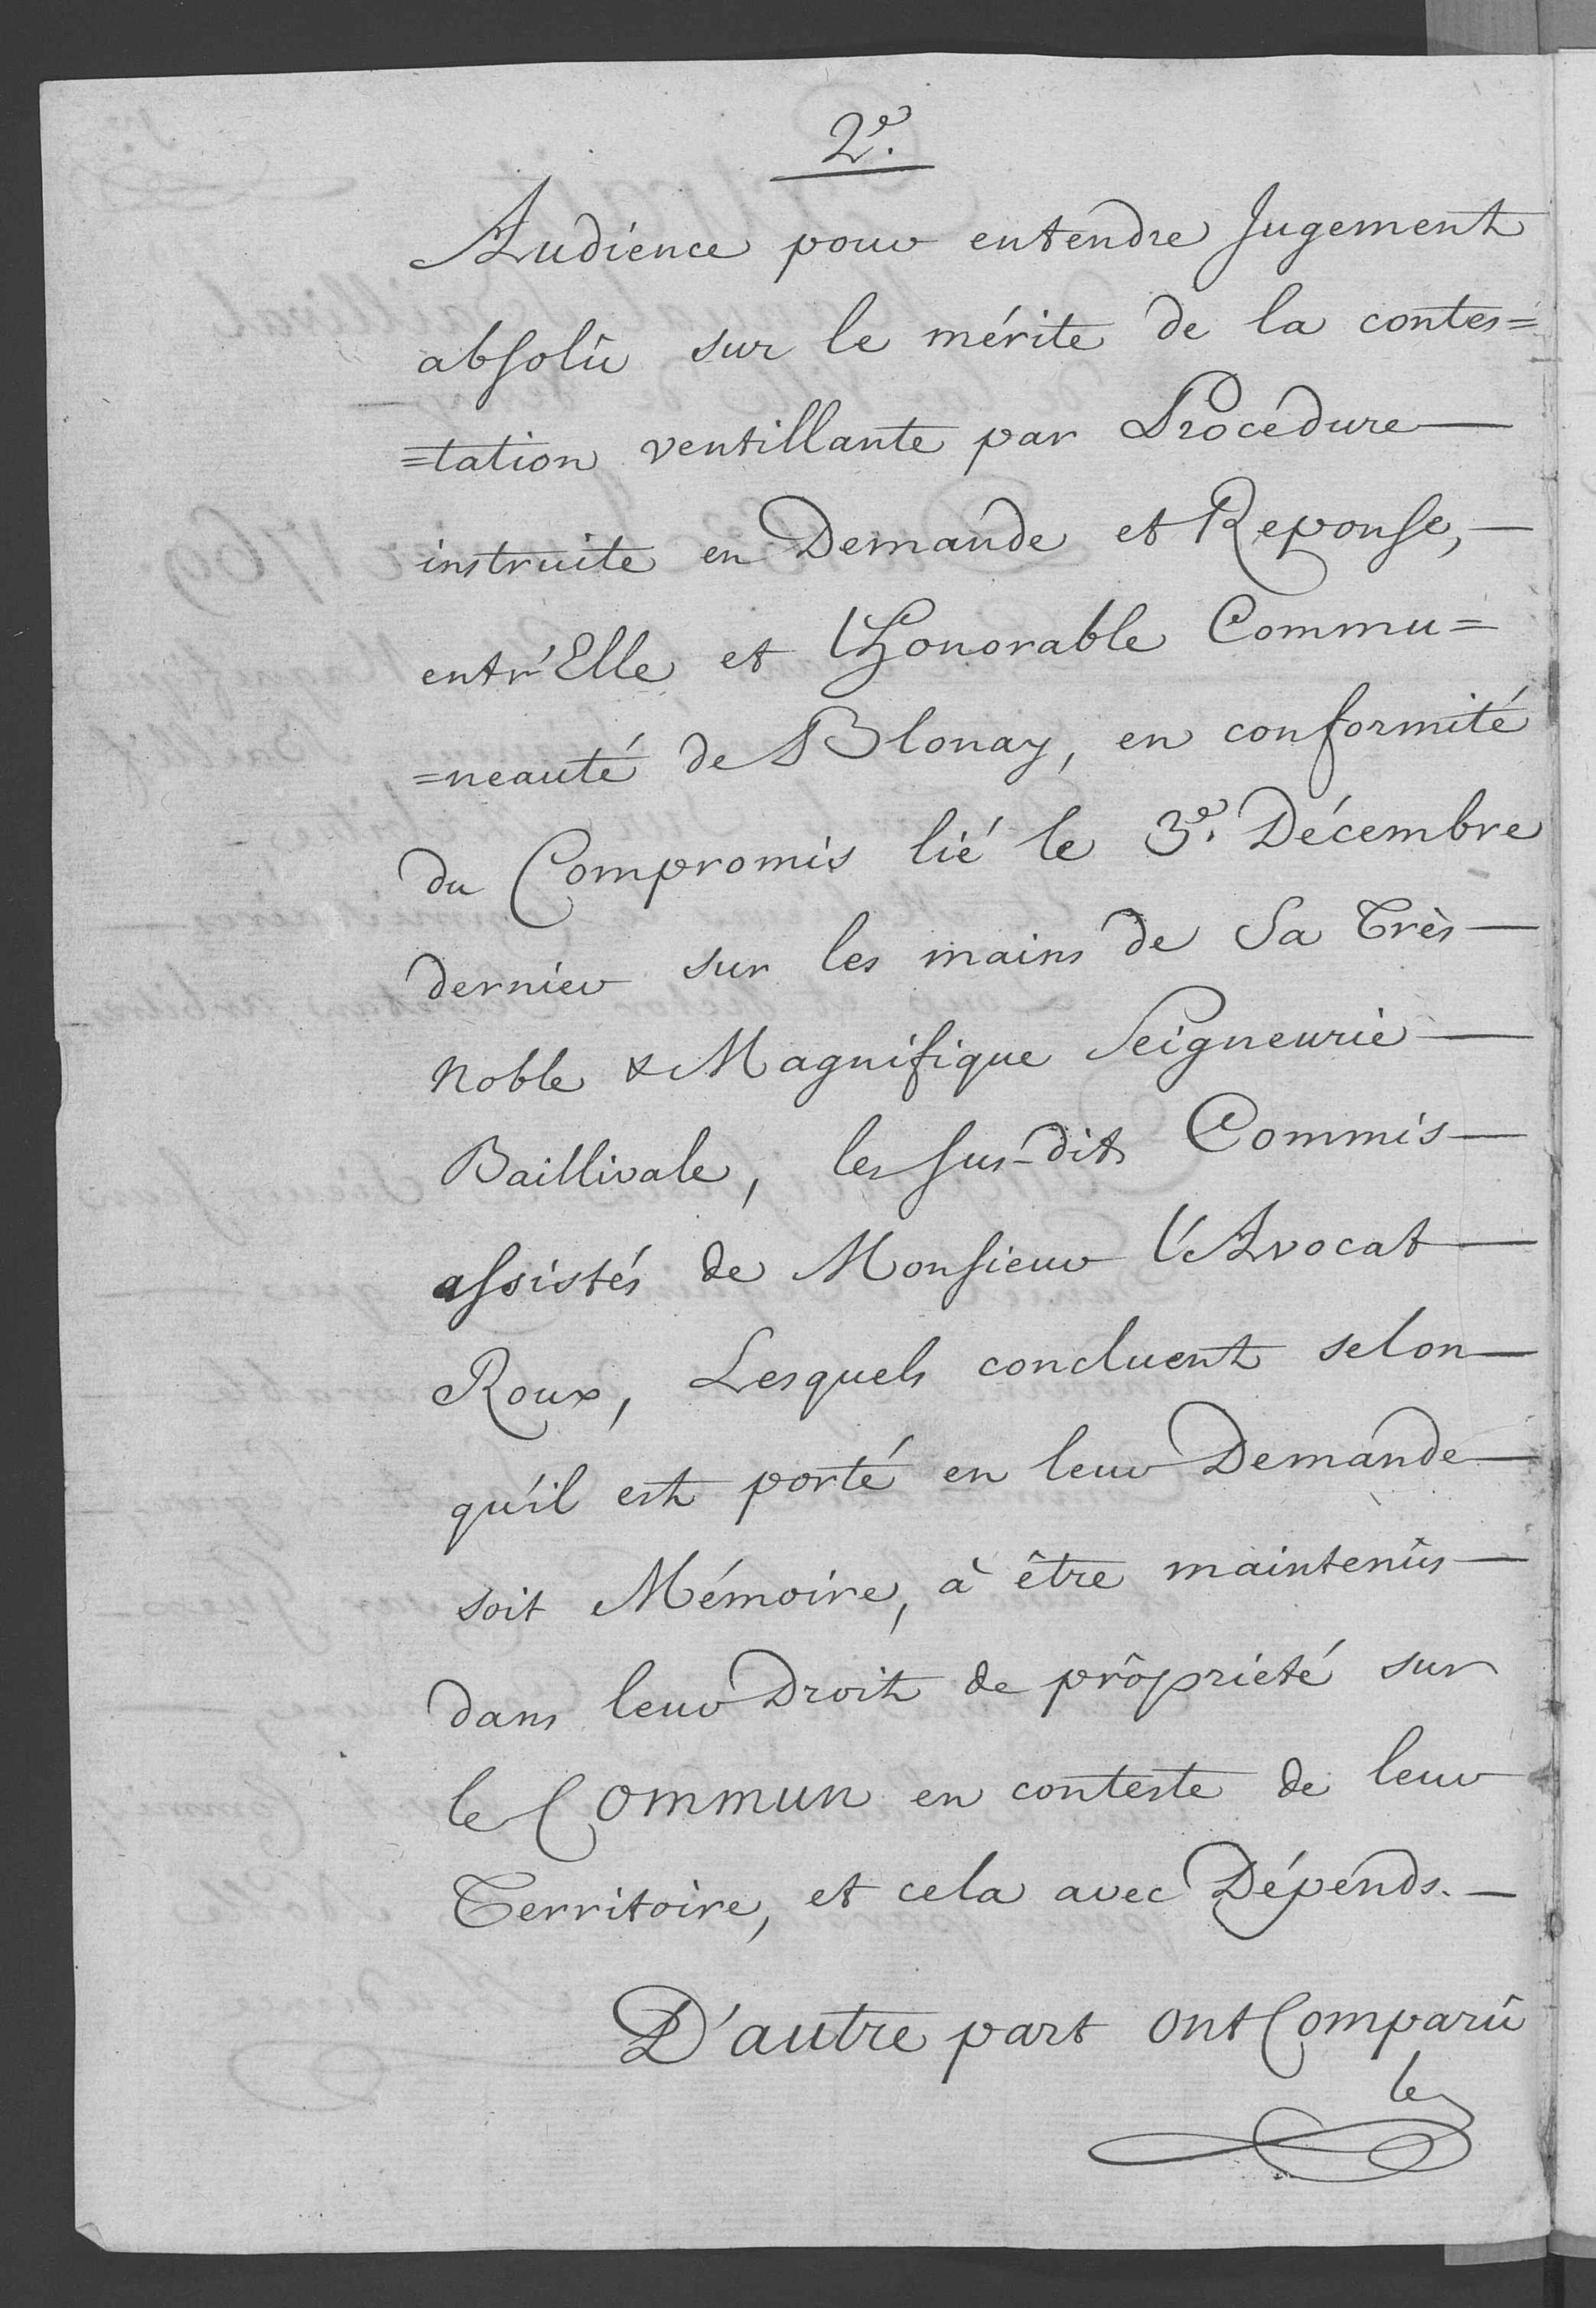 2.e
Audience pour entendre Jugement
absolû sur le mérite de la contes=
=tation ventillante par Procédure —
instruite en Demande et Reponse, —
entr'Elle et Honorable Commu=
=neauté de Blonay, en conformité
du Compromis lié le 3.e Décembre
dernier sur les mains de Sa Très —
Noble & Magnifique Seigneurie —
Baillivale, les sus-dits Commis —
assistés de Monsieur l'Avocat —
Roux, Lesquels concluent selon —
qu'il est porté en leur Demande —
soit Mémoire, à être maintenûs —
dans leur Droit de propriété sur
le Commun en conteste de leur
Territoire, et cela avec Dépends. —
D'autre part ont Comparû
les